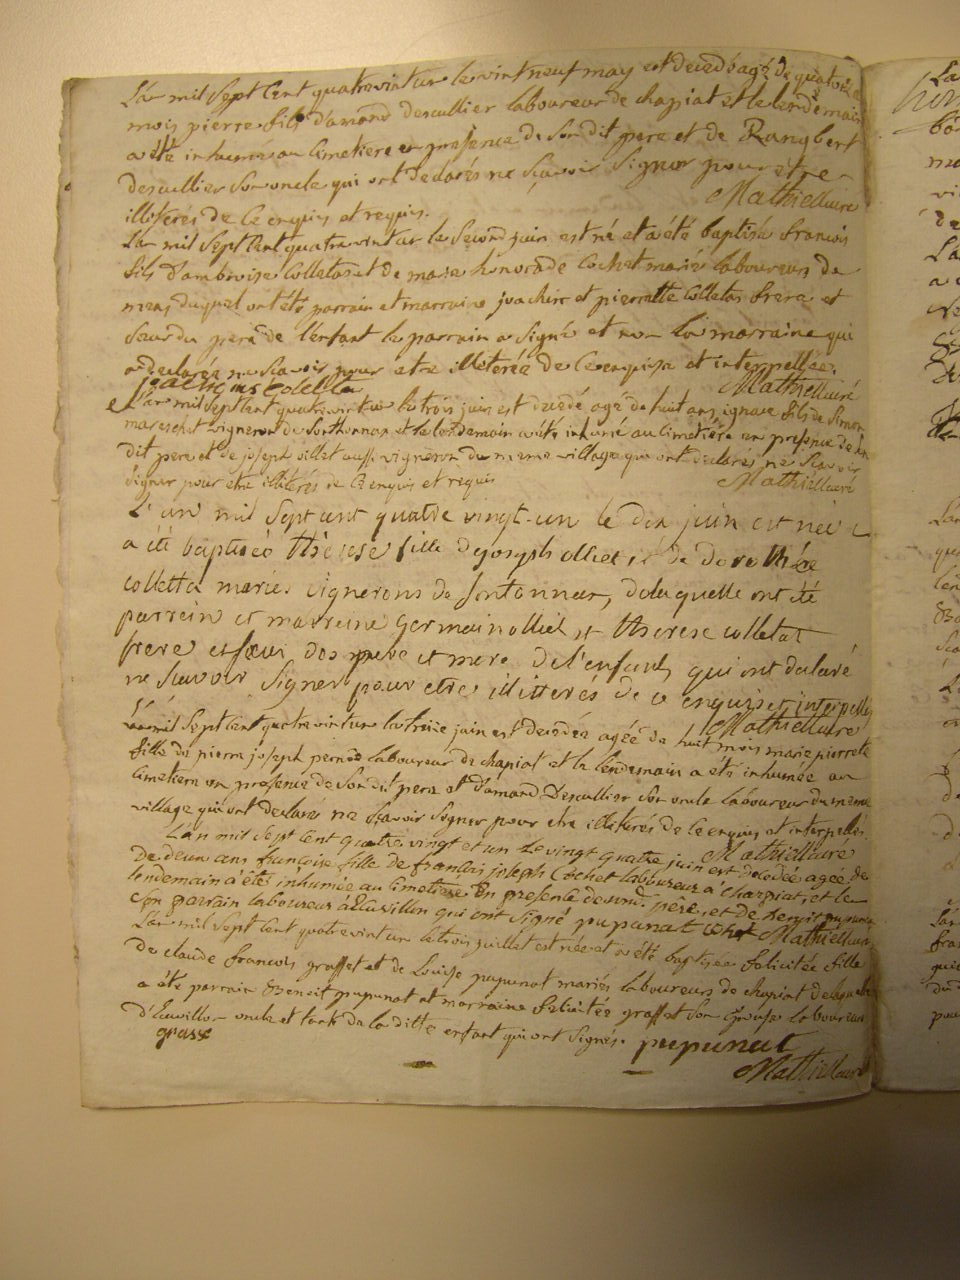 L'an mil sept cent quatrevint un le vint neuf may est decedé agé de quatorze
mois pierre fils d'amand descullier laboureur de chapiat et le lendemain
a été inhumé au cimetiere en presence de son dit pere et de Rangbert
descullier son oncle qui ont declarés ne sçavoir signer pour etre
illiterés de ce enquis et requis. Mathielluiré
L'an mil sept cent quatrevint un le second juin est né et a été baptisé francois
fils d'ambroise Colletaz et de marie honorade Cochet mariés laboureurs de
duquel ont été parrain et marraine joachim et pierrette Colletaz frere et
soeur du pere de l'enfant le parrain a signé et non la marraine qui
a declarée ne sçavoir pour etre illeterée de ce enquise et interpellée.
joachims Coletta Mathielluiré
L'an mil sept cent quatrevint un le trois juin est decedé agé de huit ans ignace fils de Simon
mareschet vigneron de Sonthonnax et le lendemain a été inhumé au cimetiere en presence de son
dit pere et de joseph ollet aussi vigneron du meme village qui ont declarés ne sçavoir
signer pour etre illiterés de ce enquis et requis Mathielluiré
L'an mil sept cent quatre vingt-un le dix juin est née et
a été baptisée thérese fille de joseph olliet et de dorothée
colletta mariés vignerons de sontonnax, de laquelle ont été
parrein et marreine germain olliet et therese colletat
frere et soeur des pere et mere de l'enfant, qui ont declaré
ne scavoir signer pour etre illitterés de ce enquis et interpellés
Mathielluiré
L'an mil sept cent quatrevint un le treize juin est decedée agée de huit mois marie pierrette
fille de pierre joseph laboureur de chapiat et le lendemain a été inhumée au
cimetiere en presence de son dit pere et d'amand Descullier son oncle laboureur du meme
village qui ont declarés ne sçavoir signer pour etre illiterés de ce enquis et interpellés
L'an mil sept cent quatre vingt et un le vingt quatre juin est decedée agée de Mathielluiré
De deux ans françoise fille de françois joseph Cochet laboureur à charpiat, et le
lendemain à été inhumée au cimetiere En presence de son d. pere, et de benoit pupunat
son parrain laboureur à Ecuvillon qui ont signé pupunat Cochet Mathielluiré
L'an mil sept cent quatrevint un le trois juillet est née et a été baptisée felicitée fille
De claude francois graffet et de Louise pupunat mariés laboureurs de chapiat de laquelle
a été parrain Benoit pupunat et marraine felicitée graffet son epouse laboureur
d'Ecuvillon oncle et tante de la ditte enfant qui ont signés. pupunat
grasse Mathielluiré